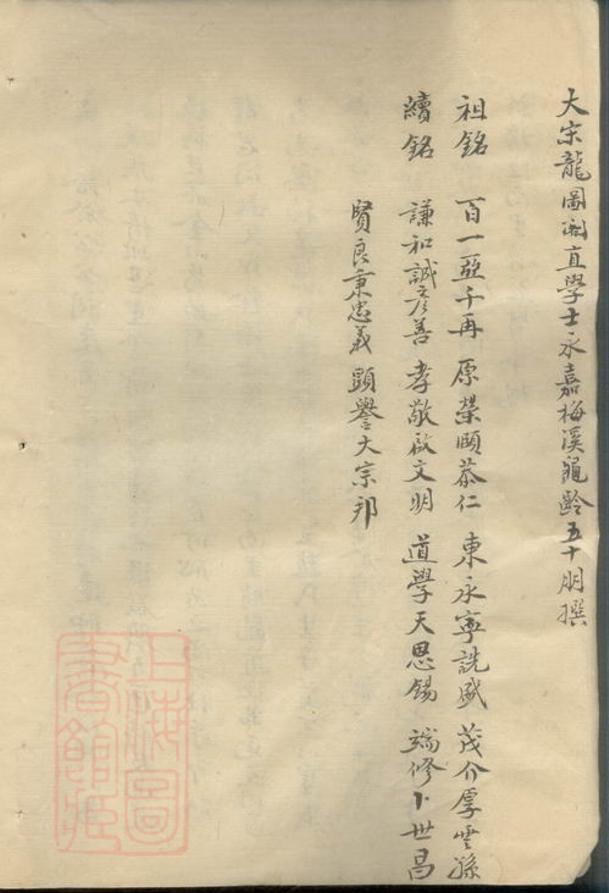 大宋龍圖阁直學士永嘉梅溪龜齡王十朋撰
祖銘 百一亞千再 原榮頤恭仁 東永寧詵盛 茂介厚雲孫
續銘 謙和誠彦善 孝敬啟文明 道學天恩錫 端修卜世昌
賢良秉忠義 顕譽大宗邦
上海圖書館藏